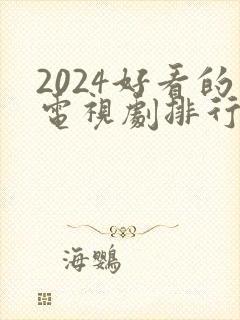 2024好看的
電視劇排行
海鸚